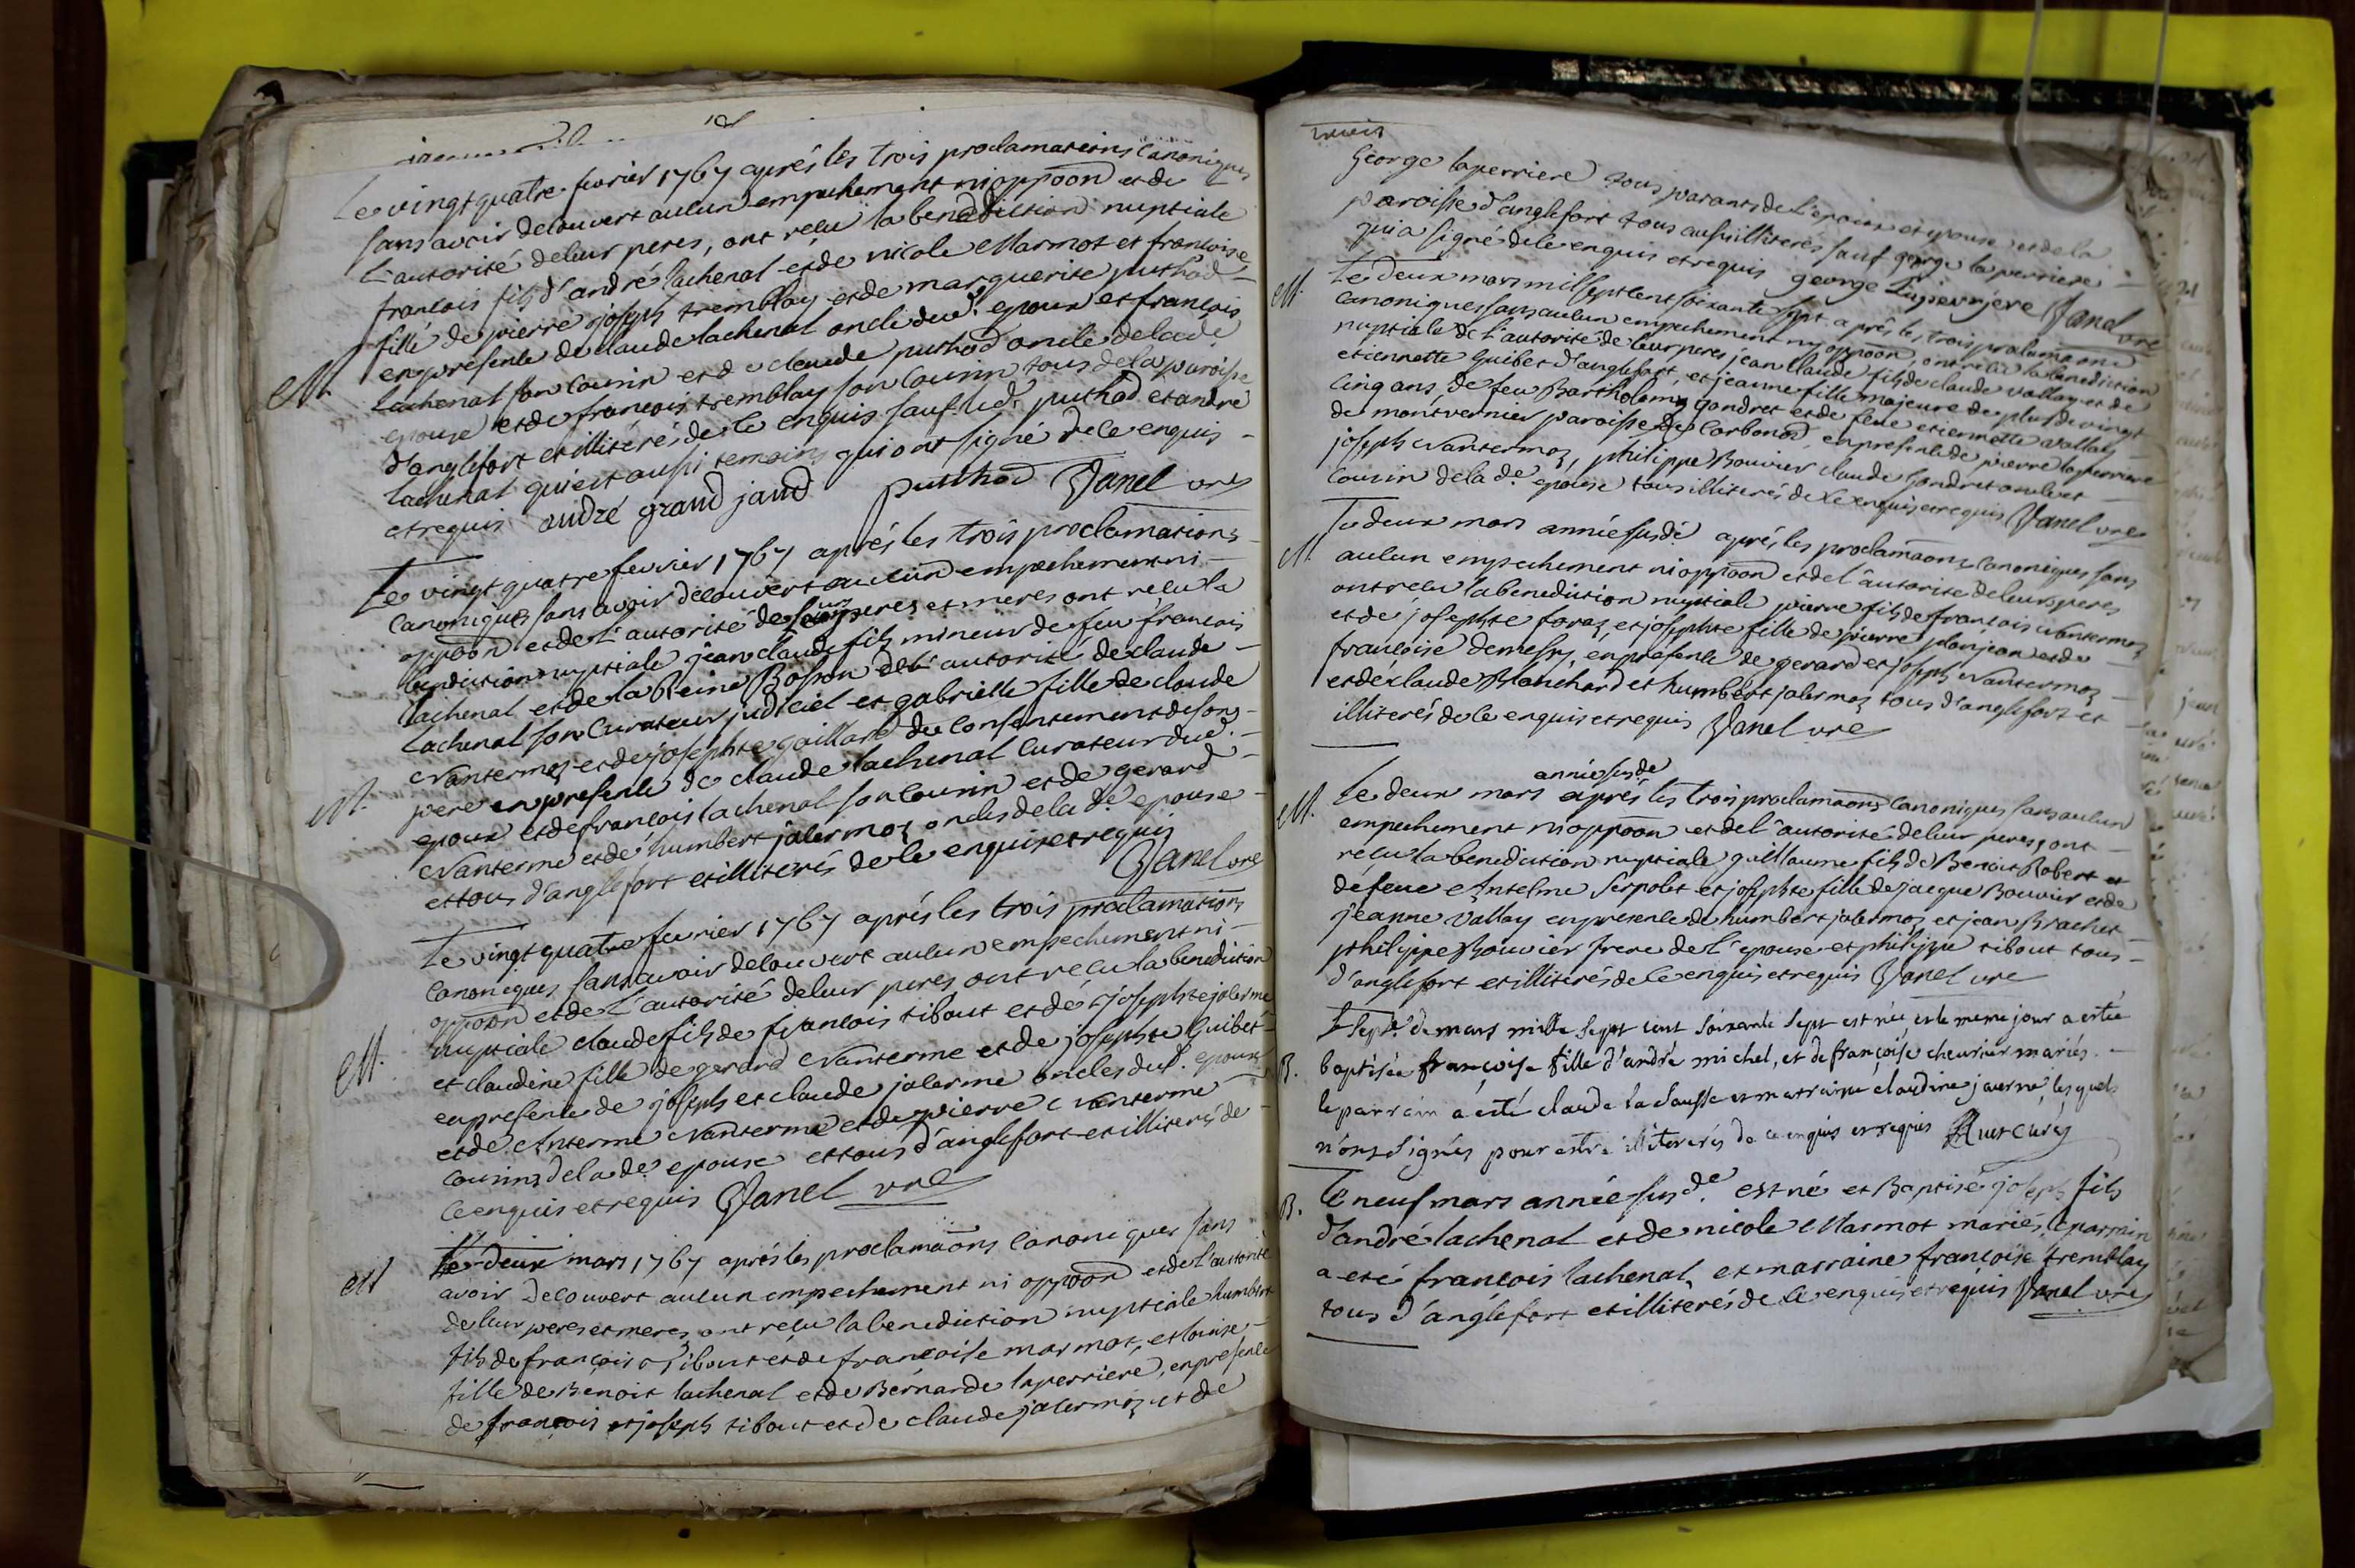 Le vingt quatre fevrier 1767 aprés les trois proclamations canoniques
sans avoir decouvert aucun empechement ni oppoon et de
L'autorité de leur peres, ont reçu la benediction nuptiale
francois fils d'andré lachenal et de nicole Marmot et francoise
fille de pierre joseph tremblay et de marguerite puthod
en presence de claude lachenal oncle dud. epoux et francois
Lachenal son cousin et de claude puthod oncle de lade
M. epouse et de francois tremblay son cousin tous de la paroisse
d'anglefort et illiterés de ce enquis sauf led. puthod et andré
lachenal qui est aussi temoins qui ont signé de ce enquis
et requis andré grand jand puthod Janel vre
Le vingt quatre fevrier 1767 aprés les trois proclamations
Canoniques sans avoir decouvert aucun empechement ni
oppoon et de L'autorité de leurs peres et meres ont reçu la
benediction nuptiale jean claude fils mineur de feu francois
lachenal et de la Reine Bosson de L'autorité de claude
Lachenal son Curateur judiciel et gabrielle fille de claude
Nantermoz et de josephte gaillard du consentement de son
M. pere en presence de claude lachenal curateur dud.
epoux et de francois lachenal son cousin et de gerard
Nanterme et de humbert jalermoz oncles de la de epouse
et tous d'anglefort et illiterés de ce enquis et requis
Janel vre
Le vingt quatre fevrier 1767 aprés les trois proclamations
Canoniques sans avoir decouvert aucun empechement ni
oppoon et de L'autorité de leur peres, ont recu la benediction
nuptiale claude fils de francois tibout et de josephte jalerme
M. et claudine fille de gerard Nanterme et de josephte Guibet
en presence de joseph et claude jalerme oncles dud. epoux
et de Anterme Nanterme et de pierre Nanterme
cousins de la de epouse et tous d'anglefort et illiterés de
ce enquis et requis Janel vre
M Le deux mars 1767 aprés les proclamaons canoniques sans
avoir decouvert aucun empechement ni oppoon et de L'autorité
de leur peres et meres, ont reçu la benediction nuptiale humbert
fils de françois tibout et de francoise marmot, et louise
fille de Benoit lachenal et de Bernarde laperriere, en presence
de francois et joseph tibout et de claude jalermoz et de
George laperriere tous parants de L'epoux et epouse et de la
paroisse d'anglefort tous aussi illiterés sauf george laperriere
qui a signé de ce enquis et requis george Laperriere Janel vre
M. Le deux mars mil sept cent soixante sept aprés les trois proclamaons
Canoniques sans aucun empechement ni oppoon, ont reçu la benediction
nuptiale de L'autorité de leur peres jean claude fils de claude vallay et de
etiennette Guibet d'anglefort, et jeanne fille majeure de plus de vingt
cinq ans de feu Bartholomy gondret et de feue etiennette vallay
de montvernier paroisse de Corbonod, en presence de pierre laperriere
joseph Nantermoz, philippe Bouvier claude gondret oncle et
Cousin de la de. epouse tous illiterés de ce enquis et requis Janel vre
Le deux mars année susde aprés les proclamaons canoniques sans
M. aucun empechement ni oppoon et de L'autorité de leurs peres
ont recu la benediction nuptiale pierre fils de francois Nantermoz
et de josephte foraz, et josephte fille de pierre planjean et de
francoise demesy, en presence de gerard et joseph Nantermoz
et de claude Blanchard et humbert jalermoz tous d'anglefort et
illiterés de ce enquis et requis Janel vre
année susde
M. Le deux mars aprés les trois proclamaons Canoniques sans aucun
empechement ni oppoon et de L'autorité de leur peres, ont
recu la benediction nuptiale guillaume fils de Benoit Robert et
de feue Anselme Serpolet et josephte fille de jacque Bouvier et de
jeanne Vallay en presence de humbert jalermoz et jean Brachet
philippe Bouvier frere de L'epouse et philippe tibout tous
d'anglefort et illiterés de ce enquis et requis Janel vre
Le sept de mars mille sept cent soixante sept est née, et le meme jour a estée
B. baptisée françoise fille d'andré michel, et de françoise cheurier mariés.
le parrain a esté claude la clausse et marrainne claudine jaerme, lesquels
n'ont signés pour estre illiterés de ce enquis et requis Curé
B. Le neuf mars année susde. est né et Baptisé joseph fils
d'andré lachenal et de nicole Marmot mariés, le parrain
a eté francois lachenal, et marraine francoise tremblay
tous d'anglefort et illiterés de ce enquis et requis Janel vre